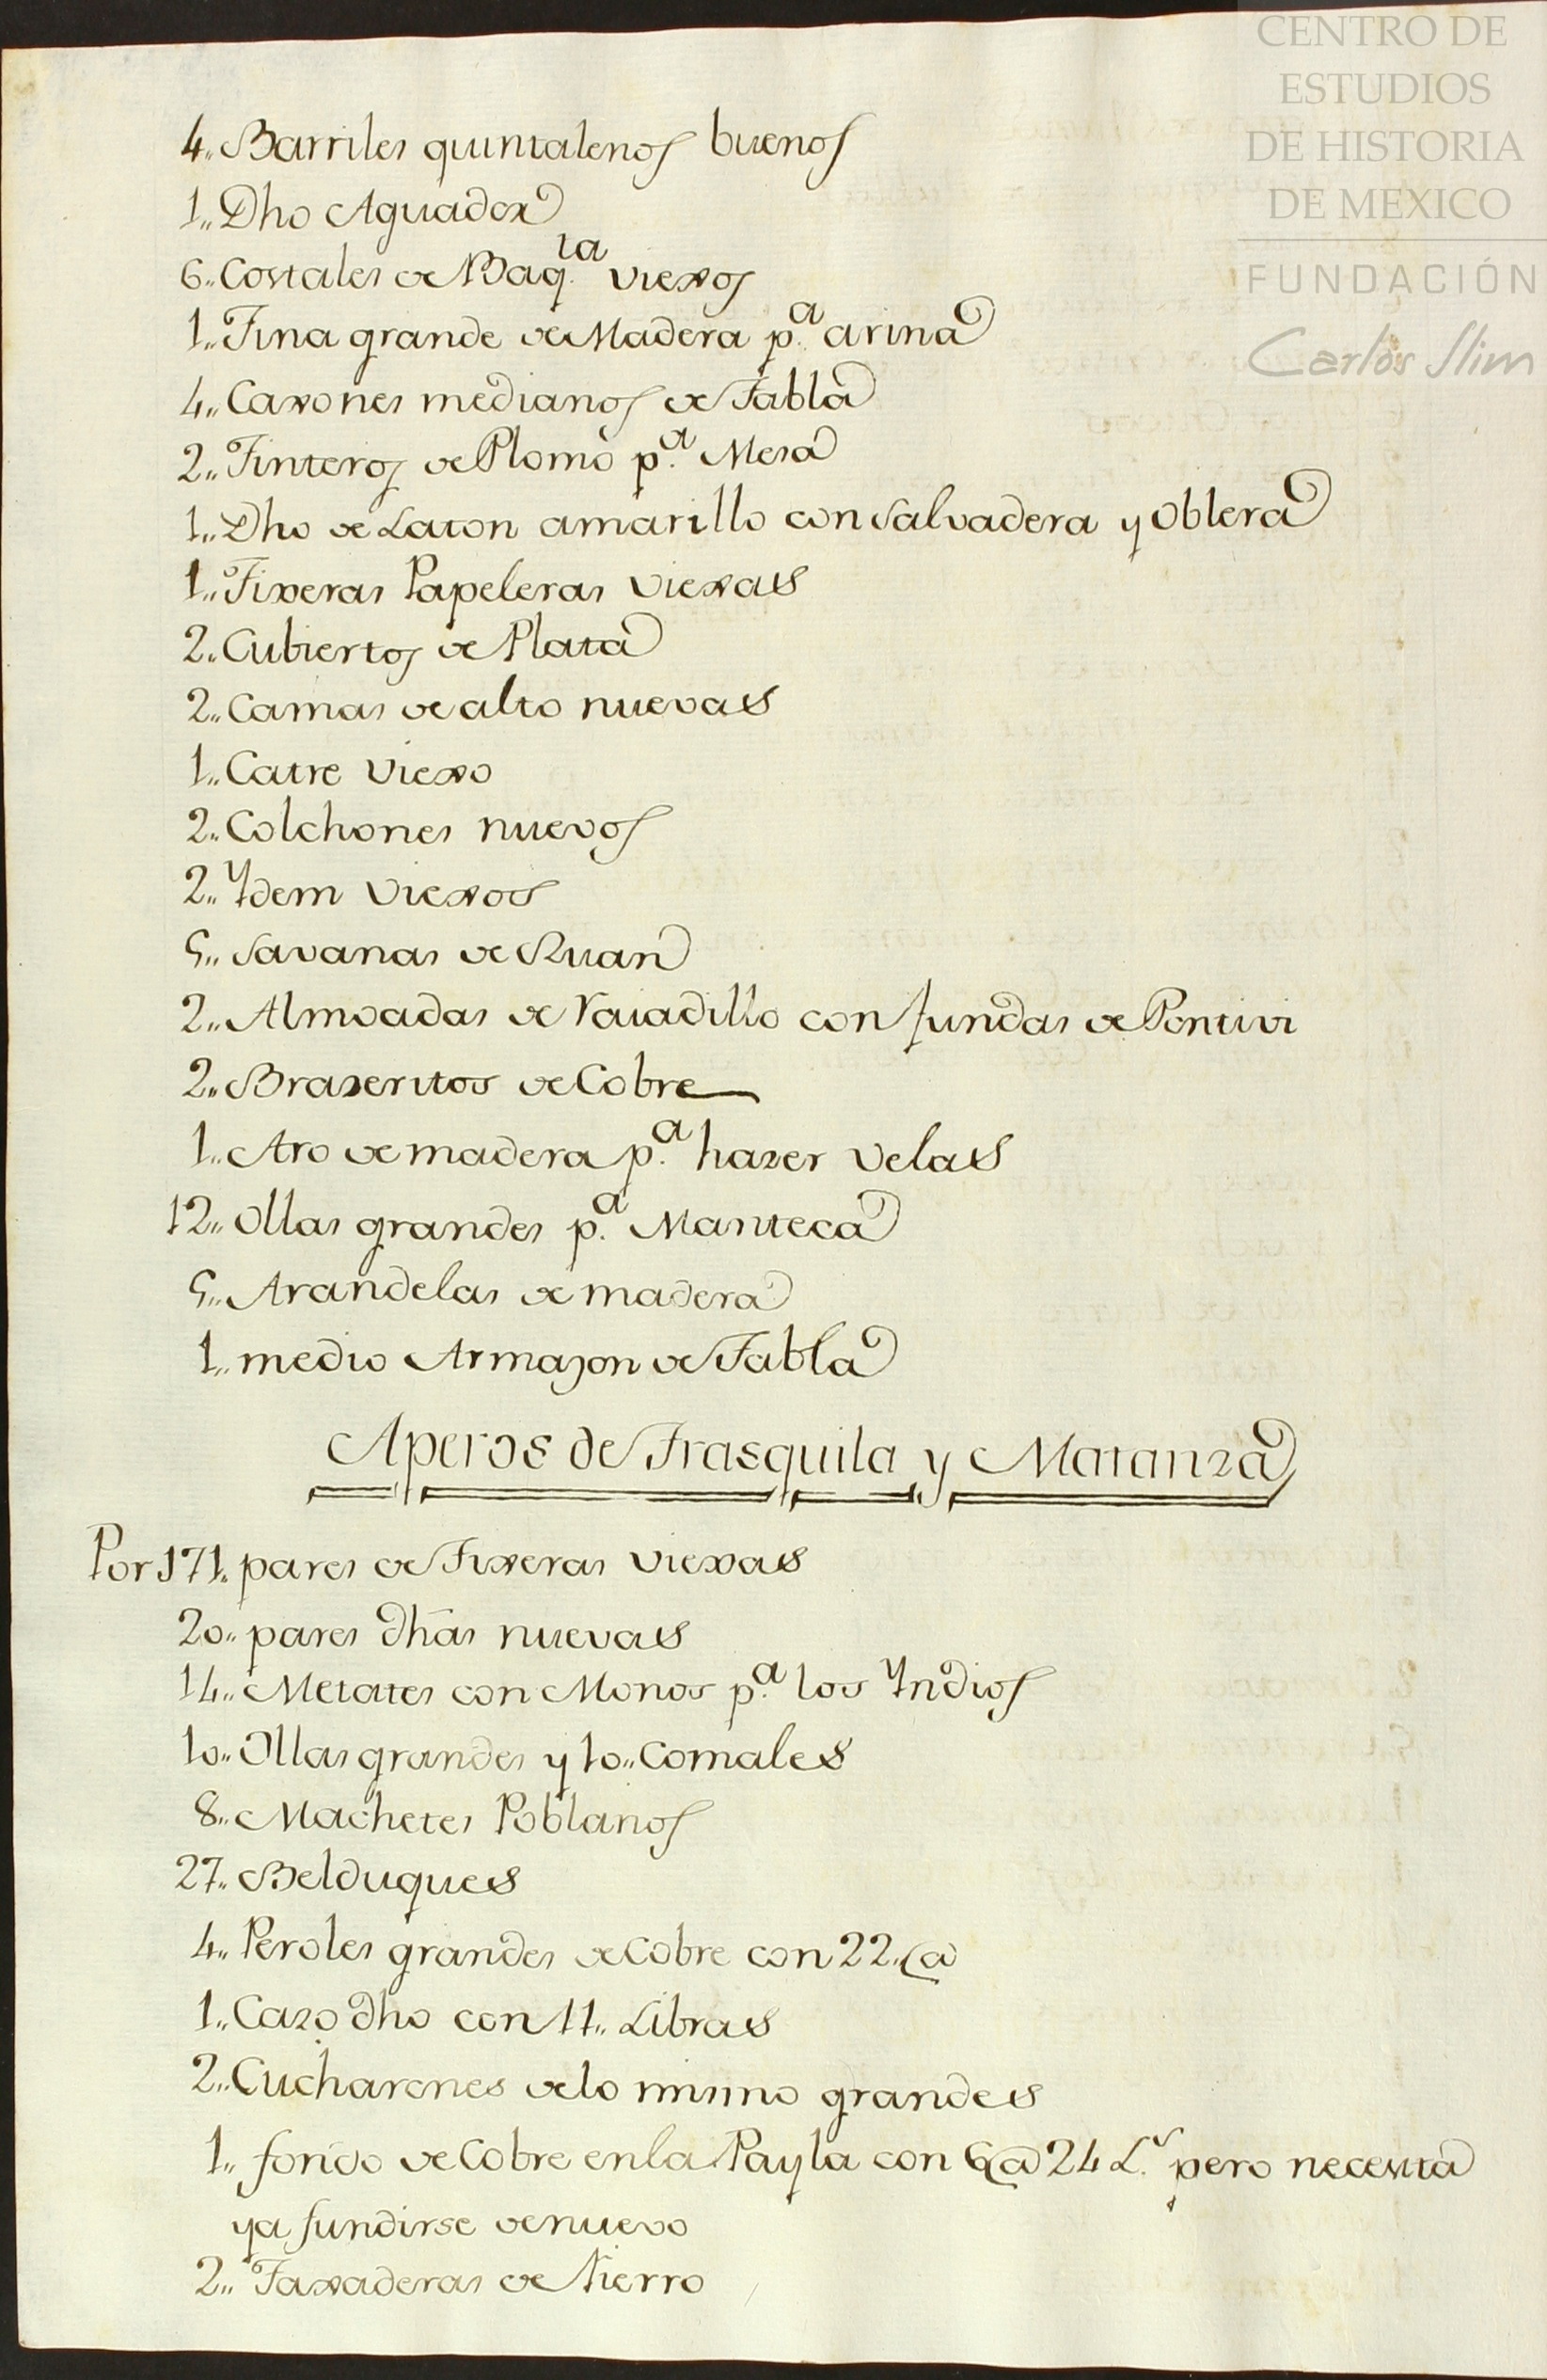 CENTRO DE
ESTUDIOS
DE HISTORIA
DE MEXICO
FUNDACIÓN
Carlos Slim
4,, Barriles quintalenos buenos
1,, Dho Aguador
6,, Costales de Baq.ta viexos
1,, Tina grande de Madera p.a arina
4,, Caxones medianos de Tabla
2,, Tinteros de Plomo p.a Mesa
1,, Dho de Laton amarillo con salvadera y Oblera
1,, Tixeras Papeleras viexas
2,, Cubiertos de Plata
2,, Camas de alto nuevas
1,, Catre viexo
2,, Colchones nuevos
2,, Ydem viexos
5,, Savanas de Ruan
2,, Almoadas de Vaiadillo con fundas de Pontivi
2,, Braseritos de Cobre
1,, Aro de madera p.a hazer velas
12,, Ollas grandes p.a Manteca
5,, Arandelas de madera
1,, medio Armazon de Tabla
Aperos de Trasquila y Matanza
Por 171,, pares de Tixeras viexas
20,, pares dhas nuevas
14,, Metates con Monos p.a los Yndios
10,, Ollas grandes y 10,, Comales
8,, Machetes Poblanos
27,, Belduques
4,, Peroles grandes de Cobre con 22,, @
1,, Cazo dho con 11,, Libras
2,, Cucharones de lo mismo grandes
1,, fondo de Cobre en la Payla con 6 @ 24 L.s pero necesita
ya fundirse de nuevo
2,, Taxaderas de fierro